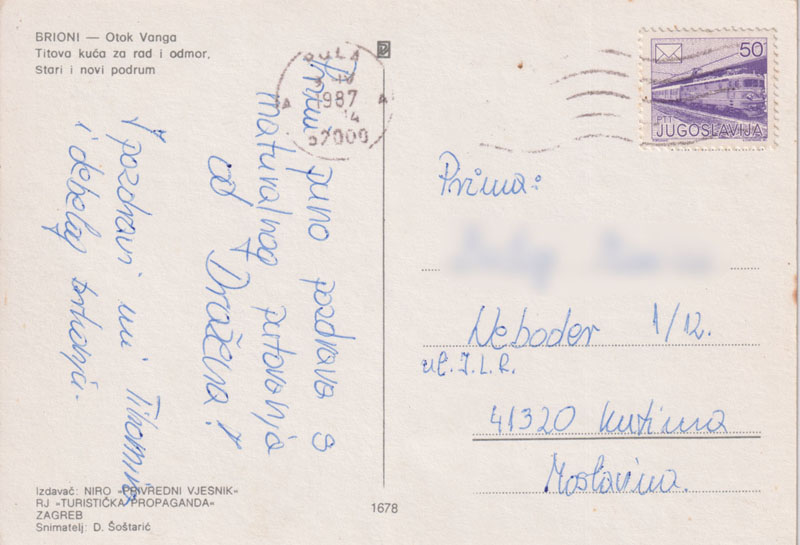 BRIONI — Otok Vanga
Titova kuća za rad i odmor,
Stari i novi podrum
PULA
1987
14
57000
50
PTT
JUGOSLAVIJA
Primi puno pozdrava s
maturalnog putovanja
od Dražena!
I pozdravi mi Tihomira
i debeloj
Prima:
Neboder 1/12.
ul. I.L.R.
41320 Kutina
Moslavina.
Izdavač: NIRO «PRIVREDNI VJESNIK»
RJ «TURISTIČKA PROPAGANDA»
ZAGREB
Snimatelj: D. Šoštarić
1678